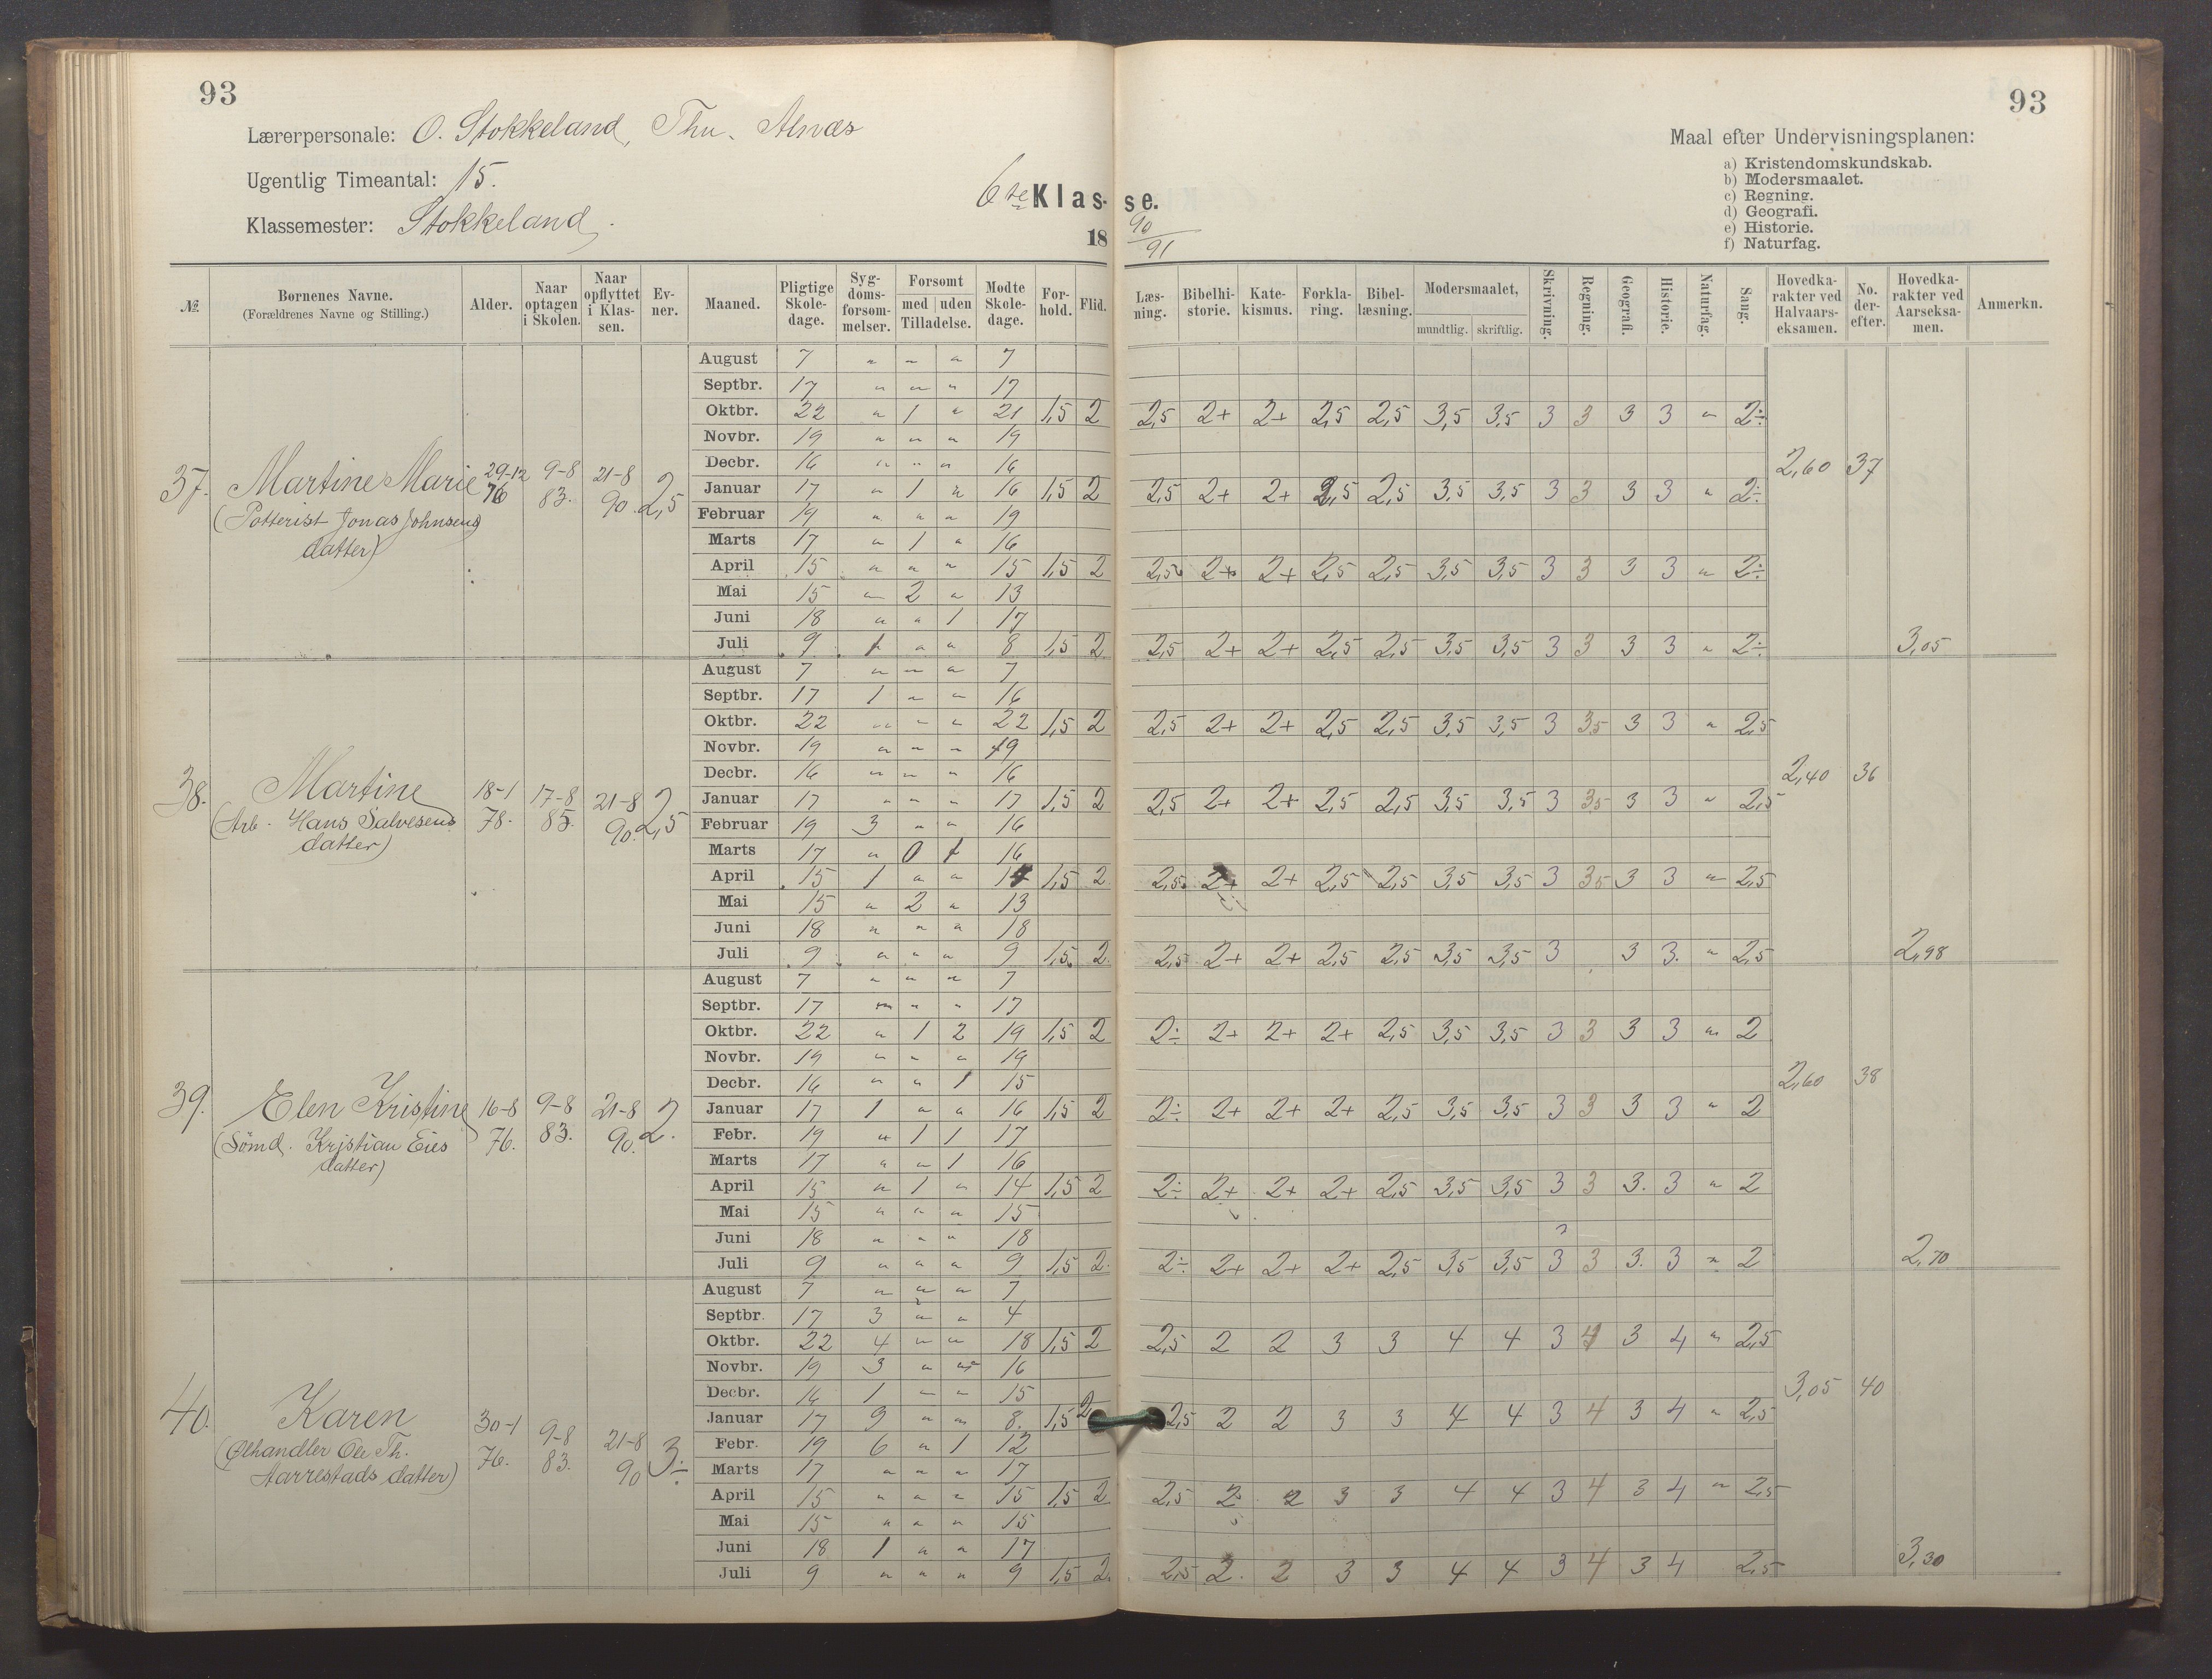 93
93
Lærerpersonale: O. Stokkeland, Thu. Alnæs
Ugentlig Timeantal: 15.
Klassemester: Stokkeland.
6te Klasse.
18 90/91
Maal efter Undervisningsplanen:
a) Kristendomskundskab.
b) Modersmaalet.
c) Regning.
d) Geografi.
e) Historie.
f) Naturfag.
№ | Børnenes Navne. (Forældrenes Navne og Stilling.) | Alder. | Naar optagen i Skolen. | Naar opflyttet i Klassen. | Evner. | Maaned. | Pligtige Skoledage. | Sygdomsforsømmelser. | Forsømt med Tilladelse. | uden Tilladelse. | Mødte Skoledage. | Forhold. | Flid. | Læsning. | Bibelhistorie. | Katekismus. | Forklaring. | Bibellæsning. | Modersmaalet, mundtlig. | skriftlig. | Skrivning. | Regning. | Geografi. | Historie. | Naturfag. | Sang. | Hovedkarakter ved Halvaarseksamen. | No. derefter. | Hovedkarakter ved Aarseksamen. | Anmerkn.
37. Martine Marie (Potterist Jonas Johnsens datter) 29-12 76 | 9-8 83. | 21-8 90. | 2,5
August 7 " " " 7
Septbr. 17 " " " 17
Oktbr. 22 " 1 " 21 1,5 2 2,5 2+ 2+ 2,5 2,5 3,5 3,5 3 3 3 3 " 2÷
Novbr. 19 " " " 19
Decbr. 16 " " " 16 2,60 37
Januar 17 " 1 " 16 1,5 2 2,5 2+ 2+ 2,5 2,5 3,5 3,5 3 3 3 3 " 2÷
Februar 19 " " " 19
Marts 17 " 1 " 16
April 15 " " " 15 1,5 2 2,5 2+ 2+ 2,5 2,5 3,5 3,5 3 3 3 3 " 2÷
Mai 15 " 2 " 13
Juni 18 " " 1 17
Juli 9 1 " " 8 1,5 2 2,5 2+ 2+ 2,5 2,5 3,5 3,5 3 3 3 3 " 2÷ 3,05
38. Martine (Arb. Hans Salvesens datter) 18-1 78. | 17-8 85. | 21-8 90. | 2,5
August 7 " " " 7
Septbr. 17 1 " " 16
Oktbr. 22 " " " 22 1,5 2 2,5 2+ 2+ 2,5 2,5 3,5 3,5 3 3,5 3 3 " 2,5
Novbr. 19 " " " 19
Decbr. 16 " " " 16 2,40 36
Januar 17 " " " 17 1,5 2 2,5 2+ 2+ 2,5 2,5 3,5 3,5 3 3,5 3 3 " 2,5
Februar 19 3 " " 16
Marts 17 " 0 1 16
April 15 1 " " 14 1,5 2 2,5 2+ 2+ 2,5 2,5 3,5 3,5 3 3,5 3 3 " 2,5
Mai 15 " 2 " 13
Juni 18 " " " 18
Juli 9 " " " 9 1,5 2. 2,5 2+ 2+ 2,5 2,5 3,5 3,5 3 3 3. " 2,5 2,98
39. Elen Kristine (Sömd. Kristian Eies datter) 16-8 76. | 9-8 83. | 21-8 90. | 2.
August 7 " " " 7
Septbr. 17 " " " 17
Oktbr. 22 " 1 2 19 1,5 2 2÷ 2+ 2+ 2+ 2,5 3,5 3,5 3 3 3 3 " 2
Novbr. 19 " " " 19
Decbr. 16 " " 1 15 2,60 38
Januar 17 1 " " 16 1,5 2 2÷ 2+ 2+ 2+ 2,5 3,5 3,5 3 3 3 3 " 2
Febr. 19 " 1 1 17
Marts 17 " " 1 16
April 15 " 1 " 14 1,5 2 2÷ 2+ 2+ 2+ 2,5 3,5 3,5 3 3 3. 3 " 2
Mai 15 " " " 15
Juni 18 " " " 18
Juli 9 " " " 9 1,5 2. 2÷ 2+ 2+ 2+ 2,5 3,5 3,5 3 3 3. 3 " 2 2,70
40. Karen (Ølhandler Ole Th. Aarrestads datter) 30-1 76. | 9-8 83. | 21-8 90 | 3÷
August 7 " " " 7
Septbr. 17 3 " " 4
Oktbr. 22 4 " " 18 1,5 2 2,5 2 2 3 3 4 4 3 4 3 4 " 2,5
Novbr. 19 3 " " 16
Decbr. 16 1 " " 15 3,05 40
Januar 17 9 " " 8. 1,5 2 2,5 2 2 3 3 4 4 3 4 3 4 " 2,5
Febr. 19 6 " 1 12
Marts 17 " " " 17
April 15 " " " 15 1,5 2 2,5 2 2 3 3 4 4 3 4 3 4 " 2,5
Mai 15 " " " 15
Juni 18 1 " " 17
Juli 9 " " " 9 1,5 2. 2,5 2. 2 3 3 4 4 3 4 3 4 2,5 3,30